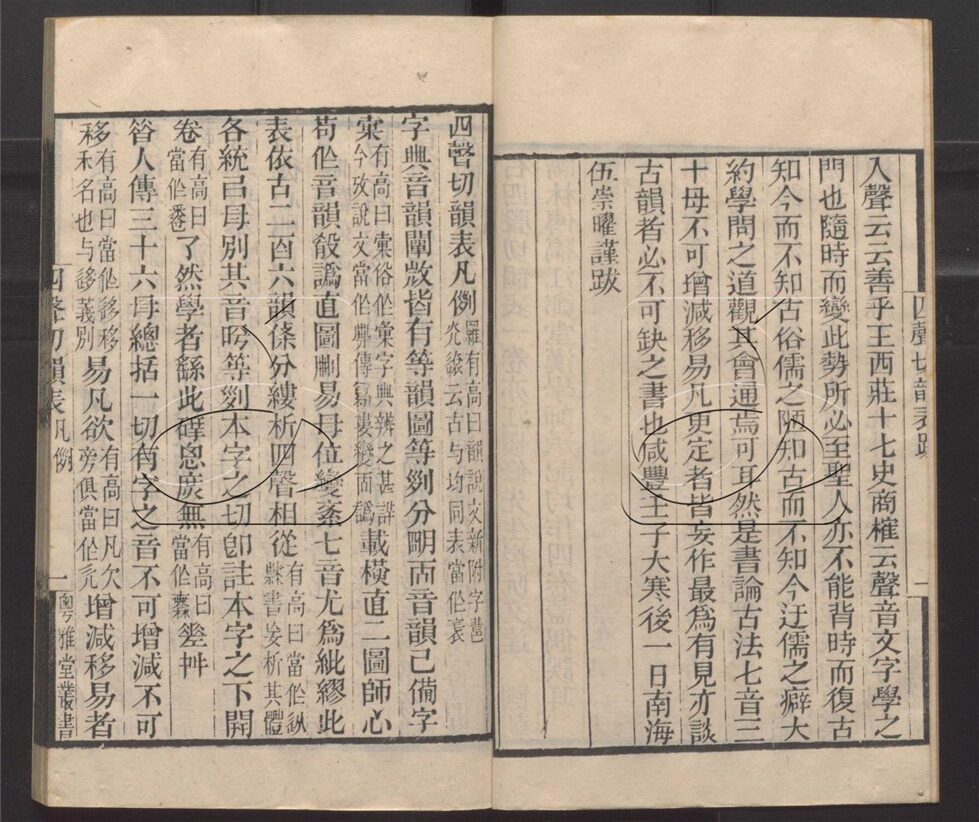 入聲云云善乎王西莊十七史商榷云聲音文字學之
門也隨時而變此勢所必至聖人亦不能背時而復古
知今而不知古俗儒之陋知古而不知今迂儒之癖大
約學問之道觀其會通焉可耳然是書論古法七音三
十母不可增減移易凡更定者皆妄作最爲有見亦談
古韻者必不可缺之書也咸豐壬子大寒後一日南海
伍崇曜謹跋
四聲切韻表跋
一
四聲切韻表凡例
羅有高曰韻說文新附字邕
云古与均同表當作𧘝
字典音韻闡微皆有等韻圖等列分明而音韻己備字
彙
有高曰彙俗作彙字典辨之甚詳
今攷說文當作傳寫婁變而譌
載橫直二圖師心
苟作音韻殽譌直圖刪易母位變紊七音尤爲紕繆此
表依古二百六韻條分縷析四聲相從
有高曰當作
書妄析其體
各統㠯母別其音呼等列本字之切卽註本字之下開
卷
有高曰
當作
了然學者繇此研悤庶無
有高曰
當作

昔人傳三十六母總括一切有字之音不可增減不可
移
有高曰當作迻移
禾名也与迻義別
易凡欲
有高曰凡欠
旁俱當作
增減移易者
四聲切韻表
凡例
一
粵雅堂叢書